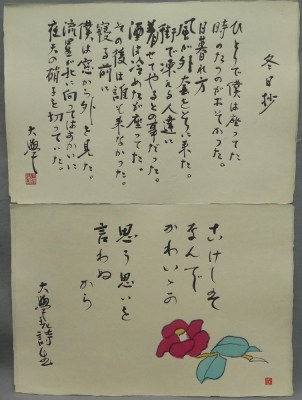 冬日抄
ひとりで僕は座ってた
時のたつのがおそかった。
日暮れ方
風が外套をとりに来た。
街で凍える人達に
着せてやるとの事だった。
酒は冷めたが座ってた。
その後は誰も来なかった。
寝る前に
僕は窓から外を見た。
流星が北に向ってはすかいに
夜天の硝子を切っていた。
大學
こけしは
なんで
かわいゝか
思う思いを
言わぬ
から
大學老詩生